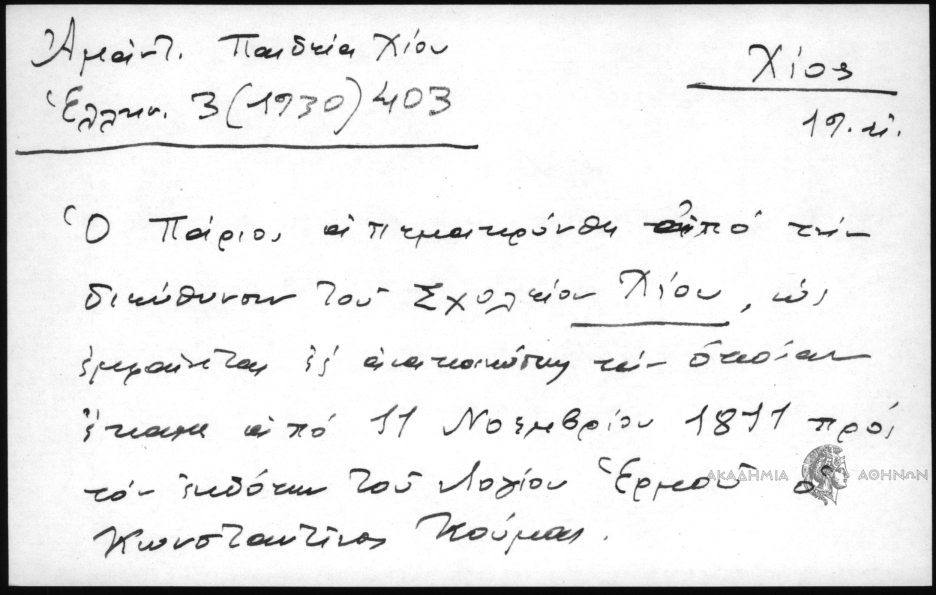 Ἀμάντ. Παιδεία Χίου
Ἑλλην. 3 (1930) 403
Χίος
19. αἰ.
Ὁ Πάριος ἀπεμακρύνθη ἀπό τήν
διεύθυνσιν τοῦ Σχολείου Χίου, ὡς
ἐμφαίνεται ἐξ ἀνακοινώσεως τήν ὁποίαν
ἔκαμε ἀπό 11 Νοεμβρίου 1811 πρός
τόν ἐκδότην τοῦ Λογίου Ἑρμοῦ ὁ
Κωνσταντῖνος Κούμας.
ΑΚΑΔΗΜΙΑ ΑΘΗΝΩΝ